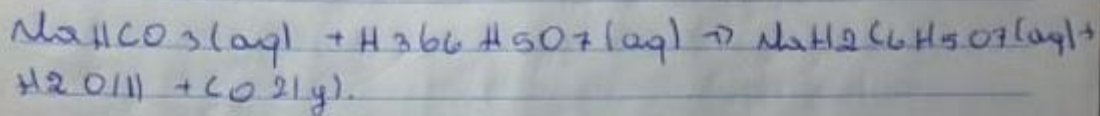 NaHCO3(aq) + H3C6H5O7(aq) → NaH2C6H5O7(aq) +
H2O(l) + CO2(g).